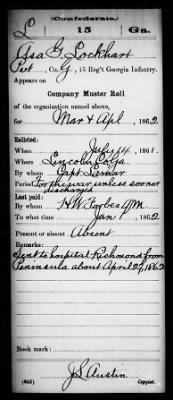 (Confederate.)
L 15 Ga.
Asa G. Lockhart
Pvt, Co. G, 15 Reg't Georgia Infantry.
Appears on
Company Muster Roll
of the organization named above,
for Mar & Apl, 1862.
Enlisted:
When July 14, 1861.
Where Lincoln Co. Ga.
By whom Capt Lamar
Period For the war unless sooner
discharged
Last paid:
By whom H W Forbes AQM
To what time Jan, 1862
Present or absent Absent
Remarks:
Sent to hospital Richmond from
Peninsula about April 27, 1862
Book mark:
J S Austin
(642) Copyist.